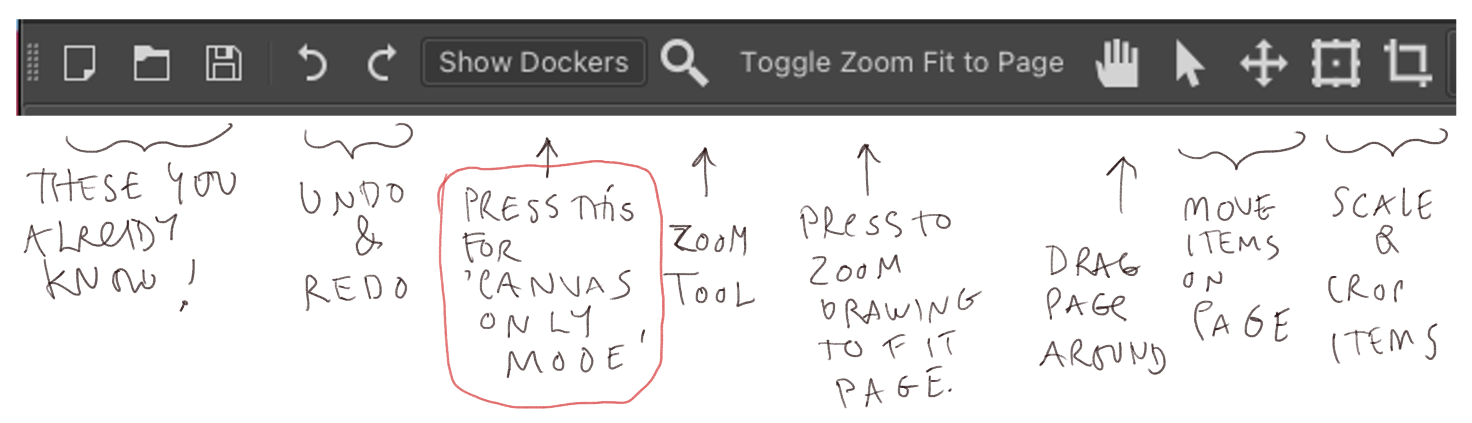 Show Dockers
Toggle Zoom Fit to Page
THESE YOU
ALREADY
KNOW!
UNDO
&
REDO
PRESS THIS
FOR
'CANVAS
ONLY
MODE'
ZOOM
TOOL
PRESS TO
ZOOM
DRAWING
TO FIT
PAGE.
DRAG
PAGE
AROUND
MOVE
ITEMS
ON
PAGE
SCALE
&
CROP
ITEMS